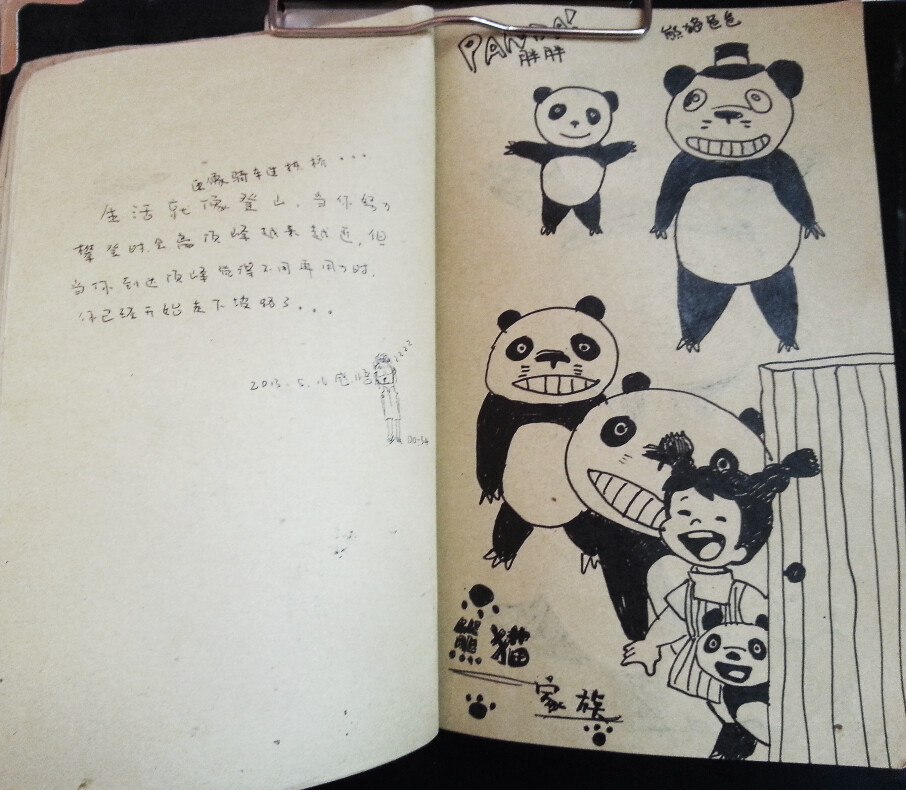 还像骑车过拱桥...
生活就像登山，当你努力
攀登时会离顶峰越来越近，但
当你到达顶峰觉得不用再用力时，
你已经开始走下坡路了...
2013.5.16感悟
00:34
PANDA!
胖胖
熊猫爸爸
熊猫
家族